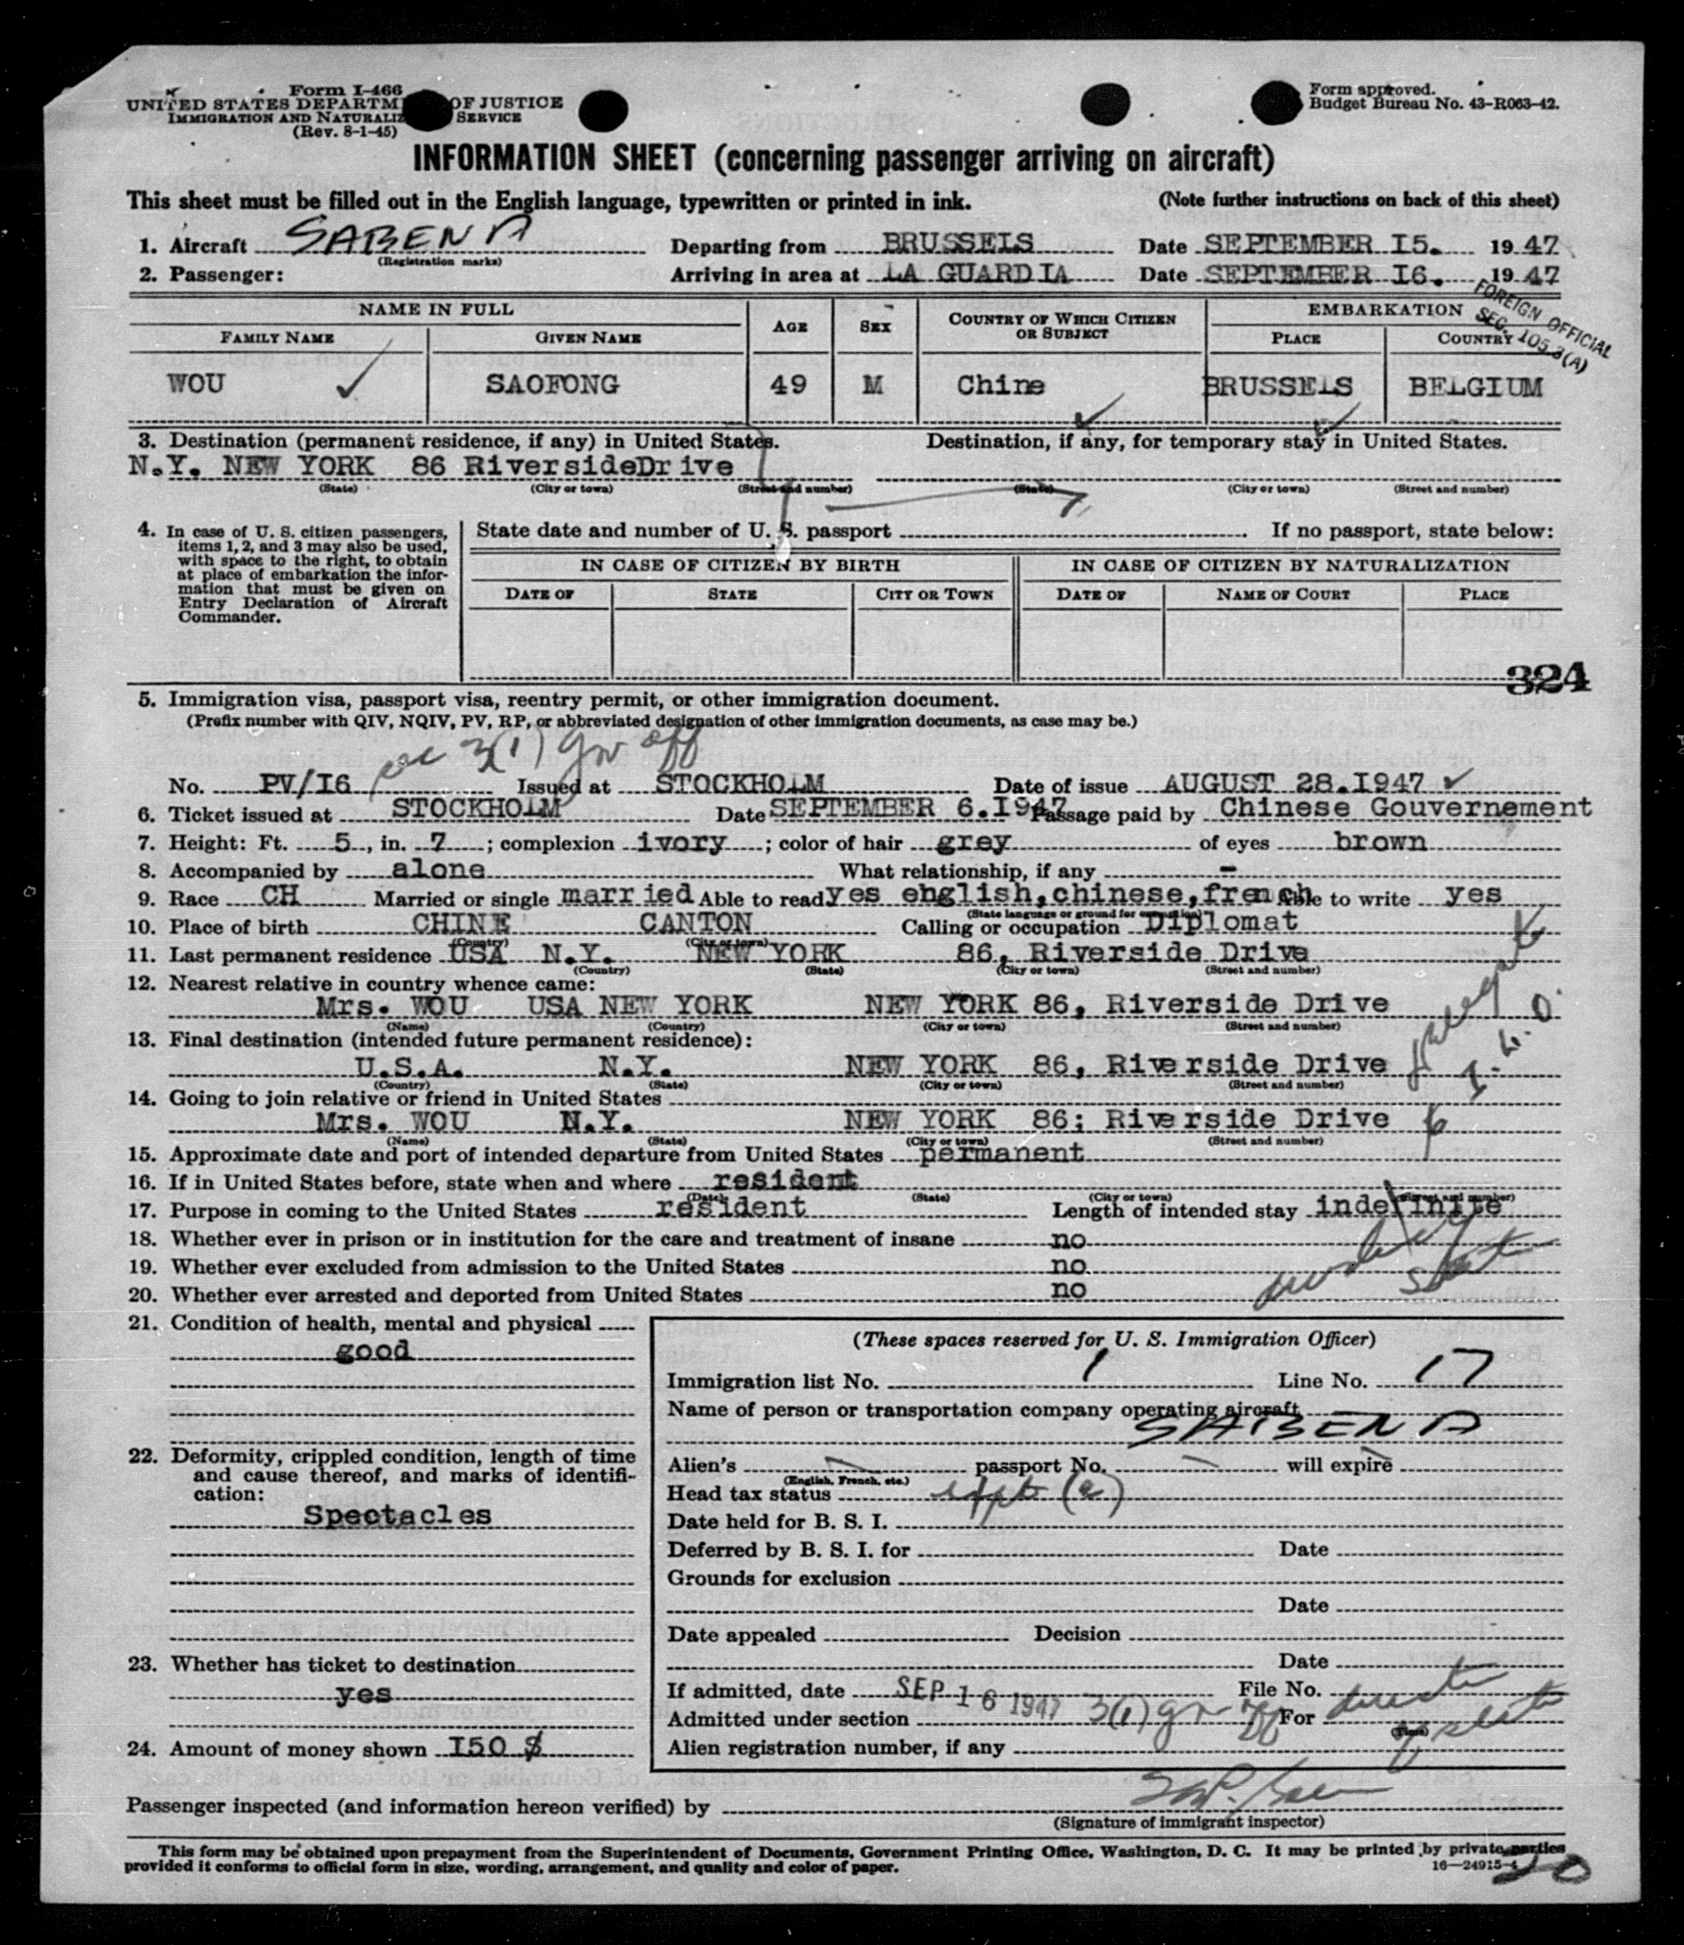 Form I-466
UNITED STATES DEPARTM OF JUSTICE
IMMIGRATION AND NATURALIZ SERVICE
(Rev. 8-1-45)
Form approved.
Budget Bureau No. 43-R063-42.
INFORMATION SHEET (concerning passenger arriving on aircraft)
This sheet must be filled out in the English language, typewritten or printed in ink. (Note further instructions on back of this sheet)
1. Aircraft SABENA Departing from BRUSSELS Date SEPTEMBER I5. 1947
(Registration marks)
2. Passenger: Arriving in area at LA GUARDIA Date SEPTEMBER I6. 1947
FOREIGN OFFICIAL
SEC. 105.3(A)
NAME IN FULL AGE SEX COUNTRY OF WHICH CITIZEN OR SUBJECT EMBARKATION
FAMILY NAME GIVEN NAME PLACE COUNTRY
WOU SAOFONG 49 M Chine BRUSSELS BELGIUM
3. Destination (permanent residence, if any) in United States. Destination, if any, for temporary stay in United States.
N.Y. NEW YORK 86 RiversideDrive
(State) (City or town) (Street and number) (State) (City or town) (Street and number)
4. In case of U. S. citizen passengers, items 1, 2, and 3 may also be used, with space to the right, to obtain at place of embarkation the information that must be given on Entry Declaration of Aircraft Commander.
State date and number of U. S. passport If no passport, state below:
IN CASE OF CITIZEN BY BIRTH IN CASE OF CITIZEN BY NATURALIZATION
DATE OF STATE CITY OR TOWN DATE OF NAME OF COURT PLACE
324
5. Immigration visa, passport visa, reentry permit, or other immigration document.
(Prefix number with QIV, NQIV, PV, RP, or abbreviated designation of other immigration documents, as case may be.)
sec 3(1) Gov off
No. PV/I6 Issued at STOCKHOLM Date of issue AUGUST 28.I947
6. Ticket issued at STOCKHOLM Date SEPTEMBER 6.I947 Passage paid by Chinese Gouvernement
7. Height: Ft. 5, in. 7; complexion ivory; color of hair grey of eyes brown
8. Accompanied by alone What relationship, if any -
9. Race CH Married or single married Able to read yes english,chinese,french Able to write yes
(State language or ground for exemption)
10. Place of birth CHINE CANTON Calling or occupation Diplomat
(Country) (City or town)
11. Last permanent residence USA N.Y. NEW YORK 86, Riverside Drive
(Country) (State) (City or town) (Street and number)
12. Nearest relative in country whence came:
Mrs. WOU USA NEW YORK NEW YORK 86, Riverside Drive
(Name) (Country) (City or town) (Street and number)
13. Final destination (intended future permanent residence):
U.S.A. N.Y. NEW YORK 86, Riverside Drive
(Country) (State) (City or town) (Street and number)
14. Going to join relative or friend in United States
Mrs. WOU N.Y. NEW YORK 86; Riverside Drive
(Name) (State) (City or town) (Street and number)
15. Approximate date and port of intended departure from United States permanent
16. If in United States before, state when and where resident
(Date) (State) (City or town) (Street and number)
17. Purpose in coming to the United States resident Length of intended stay indefinite
18. Whether ever in prison or in institution for the care and treatment of insane no
19. Whether ever excluded from admission to the United States no
20. Whether ever arrested and deported from United States no
21. Condition of health, mental and physical
good
22. Deformity, crippled condition, length of time and cause thereof, and marks of identification:
Spectacles
23. Whether has ticket to destination
yes
24. Amount of money shown I50 $
(These spaces reserved for U. S. Immigration Officer)
Immigration list No. 1 Line No. 17
Name of person or transportation company operating aircraft
SABENA
Alien's passport No. will expire
(English, French, etc.)
Head tax status
Date held for B. S. I.
Deferred by B. S. I. for Date
Grounds for exclusion
Date
Date appealed Decision
Date
If admitted, date SEP 16 1947 File No.
Admitted under section 3(1) gov off For
(Time)
Alien registration number, if any
Passenger inspected (and information hereon verified) by
(Signature of immigrant inspector)
This form may be obtained upon prepayment from the Superintendent of Documents, Government Printing Office, Washington, D. C. It may be printed by private parties
provided it conforms to official form in size, wording, arrangement, and quality and color of paper.
16—24915-4
20